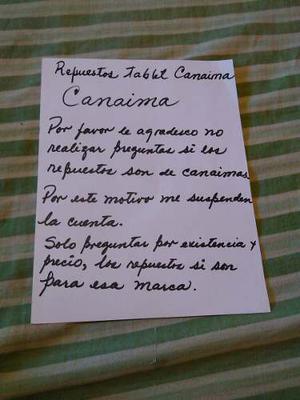 Repuestos tablet Canaima
Canaima
Por favor le agradesco no
realizar preguntas si los
repuestos son de canaimas
Por este motivo me suspenden
la cuenta.
Solo preguntar por existencia y
precio, los repuestos si son
para esa marca.